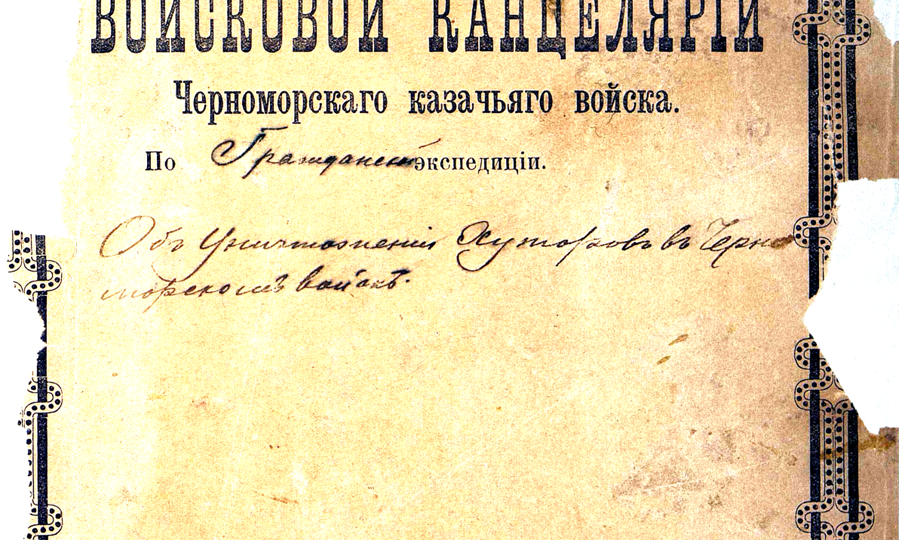 ВОЙСКОВОЙ КАНЦЕЛЯРІИ
Черноморскаго казачьяго войска.
По Гражданской экспедиціи.
Объ Уничтоженіи Хуторовъ въ Черно
морскомъ войскѣ.